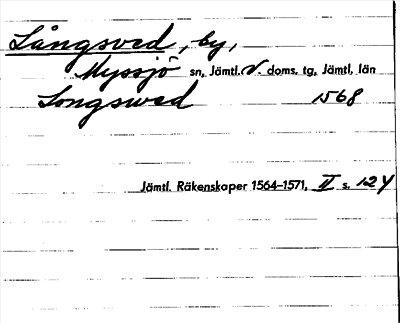 Långsved, by,
Myssjö sn, Jämtl. V. doms. tg, Jämtl, län
Longswed 1568
Jämtl. Räkenskaper 1564-1571, II s. 124